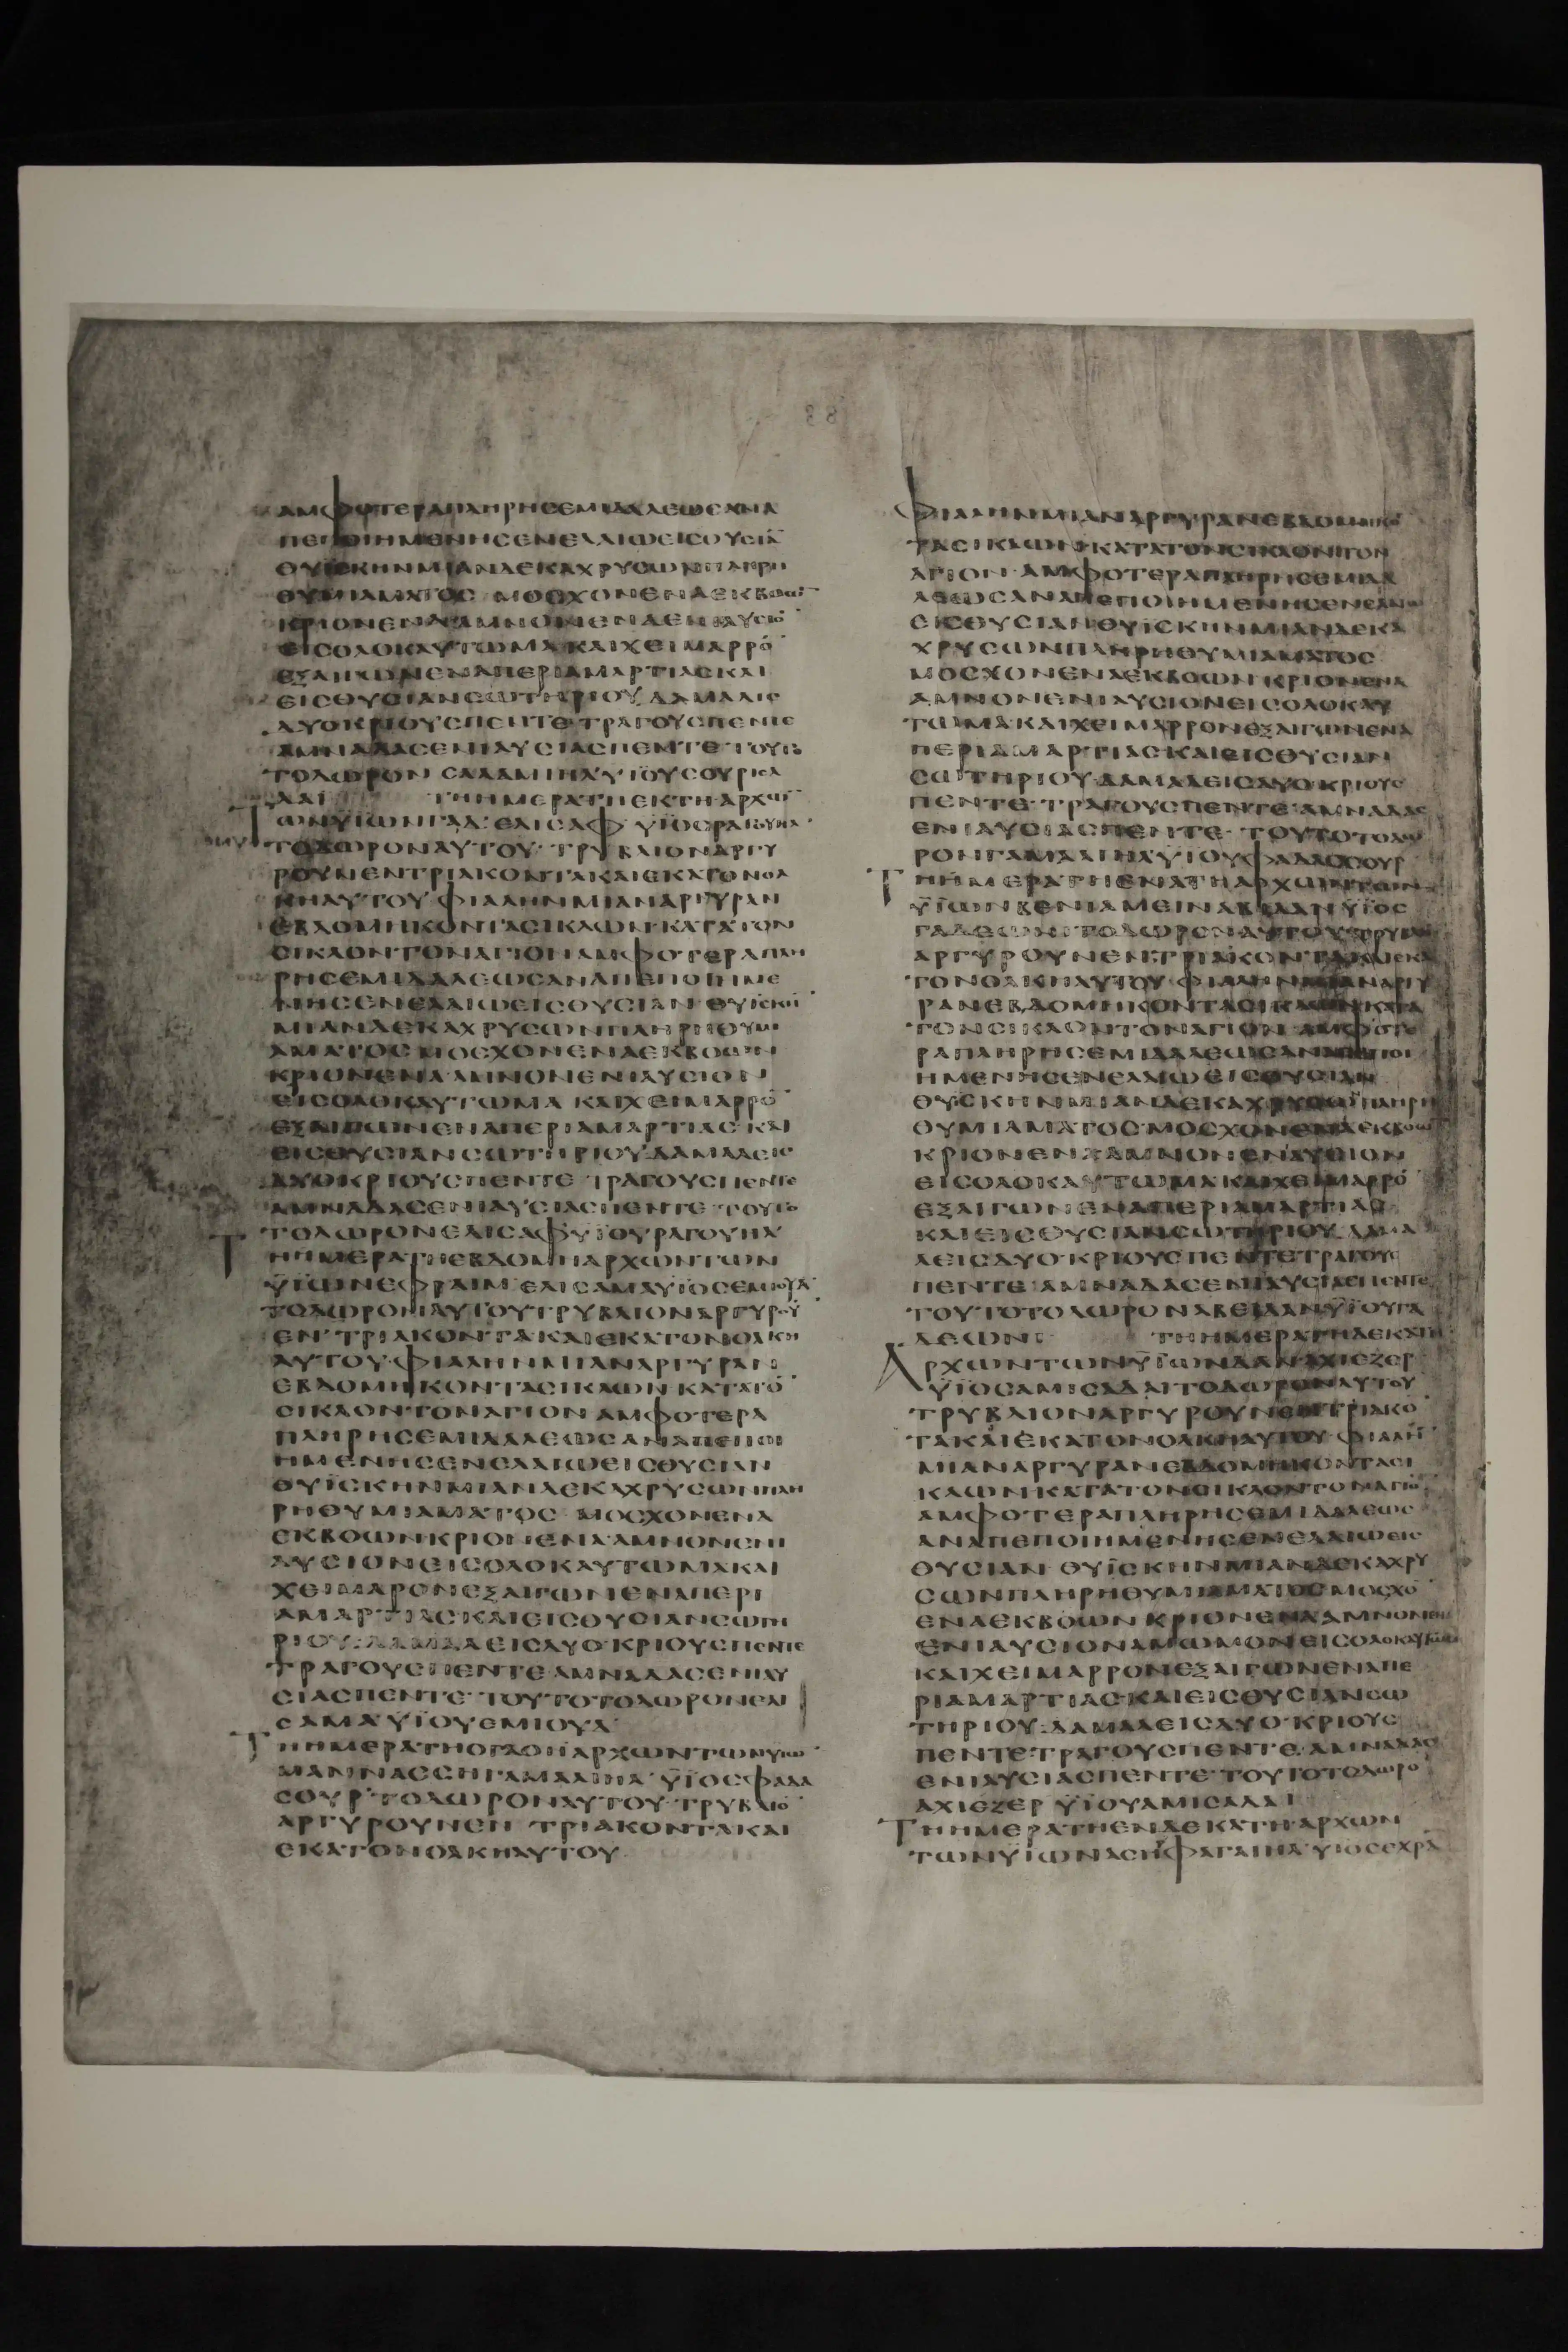 ΑΜΦΟΤΕΡΑΠΛΗΡΗCΕΜΙΔΑΛΕΩCΑΝΑ
ΠΕΠΟΙΗΜΕΝΗCΕΝΕΛΑΙΩΕΙCΘΥCΙΑ̅
ΘΥΪCΚΗΝΜΙΑΝΔΕΚΑΧΡΥCΩΝΠΛΗΡΗ
ΘΥΜΙΑΜΑΤΟC ΜΟCΧΟΝΕΝΑΕΚΒΟΩ̅
ΚΡΙΟΝΕΝΑΑΜΝΟΝΕΝΑΕΝΙΑΥCΙΟ̅
ΕΙCΟΛΟΚΑΥΤΩΜΑΚΑΙΧΕΙΜΑΡΡΟ̅
ΕΞΑΙΓΩΝΕΝΑΠΕΡΙΑΜΑΡΤΙΑCΚΑΙ
ΕΙCΘΥCΙΑΝCΩΤΗΡΙΟΥ ΔΑΜΑΛΙC
ΔΥΟΚΡΙΟΥCΠΕΝΤΕΤΡΑΓΟΥCΠΕΝΤΕ
ΑΜΝΑΔΑCΕΝΙΑΥCΙΑCΠΕΝΤΕ ΤΟΥΤΟ
ΤΟΔΩΡΟΝ CΑΛΑΜΙΗΛΥΪΟΥCΟΥΡΙCΑ
ΔΑΙ ΤΗΗΜΕΡΑΤΗΕΚΤΗΑΡΧΩ̅
ΤΩΝΥΪΩΝΓΑΔ ΕΛΙCΑΦ ΥΪΟCΡΑΓΟΥΗΛ
ΤΟΔΩΡΟΝΑΥΤΟΥ ΤΡΥΒΛΙΟΝΑΡΓΥ
ΡΟΥΝΕΝΤΡΙΑΚΟΝΤΑΚΑΙΕΚΑΤΟΝΟΛ
ΚΗΑΥΤΟΥ ΦΙΑΛΗΝΜΙΑΝΑΡΓΥΡΑΝ
ΕΒΔΟΜΗΚΟΝΤΑCΙΚΛΩΝΚΑΤΑΤΟΝ
CΙΚΛΟΝΤΟΝΑΓΙΟΝΑΜΦΟΤΕΡΑΠΛΗ
ΡΗCΕΜΙΔΑΛΕΩCΑΝΑΠΕΠΟΙΗΜΕ
ΝΗCΕΝΕΛΑΙΩΕΙCΘΥCΙΑΝ ΘΥΪCΚΗ̅
ΜΙΑΝΔΕΚΑΧΡΥCΩΝΠΛΗΡΗΘΥΜΙ
ΑΜΑΤΟC ΜΟCΧΟΝΕΝΑΕΚΒΟΩΝ
ΚΡΙΟΝΕΝΑ ΑΜΝΟΝΕΝΙΑΥCΙΟΝ
ΕΙCΟΛΟΚΑΥΤΩΜΑ ΚΑΙΧΕΙΜΑΡΡΟ̅
ΕΞΑΙΓΩΝΕΝΑΠΕΡΙΑΜΑΡΤΙΑCΚΑΙ
ΕΙCΘΥCΙΑΝCΩΤΗΡΙΟΥΔΑΜΑΛΕΙC
ΔΥΟΚΡΙΟΥCΠΕΝΤΕ ΤΡΑΓΟΥCΠΕΝΤΕ
ΑΜΝΑΔΑCΕΝΙΑΥCΙΑCΠΕΝΤΕ ΤΟΥΤΟ
ΤΟΔΩΡΟΝΕΛΙCΑΦΥΪΟΥΡΑΓΟΥΗΛ
ΤΗΗΜΕΡΑΤΗΕΒΔΟΜΗΑΡΧΩΝΤΩΝ
ΥΪΩΝΕΦΡΑΙΜ ΕΛΙCΑΜΑΥΪΟCΕΜΙΟΥΔ
ΤΟΔΩΡΟΝΑΥΤΟΥΤΡΥΒΛΙΟΝΑΡΓΥΡΟΥ̅
ΕΝ ΤΡΙΑΚΟΝΤΑΚΑΙΕΚΑΤΟΝΟΛΚΗ
ΑΥΤΟΥ ΦΙΑΛΗΝΜΙΑΝΑΡΓΥΡΑΝ
ΕΒΔΟΜΗΚΟΝΤΑCΙΚΛΩΝΚΑΤΑΤΟ̅
CΙΚΛΟΝΤΟΝΑΓΙΟΝΑΜΦΟΤΕΡΑ
ΠΛΗΡΗCΕΜΙΔΑΛΕΩCΑΝΑΠΕΠΟΙ
ΗΜΕΝΗCΕΝΕΛΑΙΩΕΙCΘΥCΙΑΝ
ΘΥΪCΚΗΝΜΙΑΝΔΕΚΑΧΡΥCΩΝΠΛΗ
ΡΗΘΥΜΙΑΜΑΤΟC ΜΟCΧΟΝΕΝΑ
ΕΚΒΟΩΝΚΡΙΟΝΕΝΑΑΜΝΟΝΕΝΙ
ΑΥCΙΟΝΕΙCΟΛΟΚΑΥΤΩΜΑΚΑΙ
ΧΕΙΜΑΡΟΝΕΞΑΙΓΩΝΕΝΑΠΕΡΙ
ΑΜΑΡΤΙΑCΚΑΙΕΙCΘΥCΙΑΝCΩΤΗ
ΡΙΟΥ ΔΑΜΑΛΕΙCΔΥΟΚΡΙΟΥCΠΕΝΤΕ
ΤΡΑΓΟΥCΠΕΝΤΕΑΜΝΑΔΑCΕΝΙΑΥ
CΙΑCΠΕΝΤΕ ΤΟΥΤΟΤΟΔΩΡΟΝΕΛΙ
CΑΜΑΥΪΟΥΕΜΙΟΥΔ
ΤΗΗΜΕΡΑΤΗΟΓΔΟΗΑΡΧΩΝΤΩΝΥΙΩ̅
ΜΑΝΝΑCCΗΓΑΜΑΛΙΗΛ ΥΪΟCΦΑΔΑ
CΟΥΡ ΤΟΔΩΡΟΝΑΥΤΟΥ ΤΡΥΒΛΙΟ̅
ΑΡΓΥΡΟΥΝΕΝ ΤΡΙΑΚΟΝΤΑΚΑΙ
ΕΚΑΤΟΝΟΛΚΗΑΥΤΟΥ
ΦΙΑΛΗΝΜΙΑΝΑΡΓΥΡΑΝΕΒΔΟΜΗΚΟ̅
ΤΑCΙΚΛΩΝΚΑΤΑΤΟΝCΙΚΛΟΝΤΟΝ
ΑΓΙΟΝ ΑΜΦΟΤΕΡΑΠΛΗΡΗCΕΜΙΔΑ
ΛΕΩCΑΝΑΠΕΠΟΙΗΜΕΝΗCΕΝΕΛΑΙΩ
ΕΙCΘΥCΙΑΝΘΥΪCΚΗΝΜΙΑΝΔΕΚΑ
ΧΡΥCΩΝΠΛΗΡΗΘΥΜΙΑΜΑΤΟC
ΜΟCΧΟΝΕΝΑΕΚΒΟΩΝΚΡΙΟΝΕΝΑ
ΑΜΝΟΝΕΝΙΑΥCΙΟΝΕΙCΟΛΟΚΑΥ
ΤΩΜΑΚΑΙΧΕΙΜΑΡΡΟΝΕΞΑΙΓΩΝΕΝΑ
ΠΕΡΙΑΜΑΡΤΙΑCΚΑΙΕΙCΘΥCΙΑΝ
CΩΤΗΡΙΟΥ ΔΑΜΑΛΕΙCΔΥΟΚΡΙΟΥC
ΠΕΝΤΕ ΤΡΑΓΟΥCΠΕΝΤΕΑΜΝΑΔΑC
ΕΝΙΑΥCΙΑCΠΕΝΤΕ ΤΟΥΤΟΤΟΔΩ
ΡΟΝΓΑΜΑΛΙΗΛΥΪΟΥΦΑΔΑCCΟΥΡ
ΤΗΗΜΕΡΑΤΗΕΝΑΤΗΑΡΧΩΝΤΩΝ
ΥΪΩΝΒΕΝΙΑΜΕΙΝΑΒΙΔΑΝΥΪΟC
ΓΑΔΕΩΝΙΤΟΔΩΡΟΝΑΥΤΟΥΤΡΥΒΛΙ
ΑΡΓΥΡΟΥΝΕΝΤΡΙΑΚΟΝΤΑΚΑΙΕΚΑ
ΤΟΝΟΛΚΗΑΥΤΟΥ ΦΙΑΛΗΝΜΙΑΝΑΡΓΥ
ΡΑΝΕΒΔΟΜΗΚΟΝΤΑCΙΚΛΩΝΚΑΤΑ
ΤΟΝCΙΚΛΟΝΤΟΝΑΓΙΟΝ ΑΜΦΟΤΕ
ΡΑΠΛΗΡΗCΕΜΙΔΑΛΕΩCΑΝΑΠΕΠΟΙ
ΗΜΕΝΗCΕΝΕΛΑΙΩΕΙCΘΥCΙΑΝ
ΘΥCΚΗΝΜΙΑΝΔΕΚΑΧΡΥCΩΝΠΛΗΡΗ
ΘΥΜΙΑΜΑΤΟC ΜΟCΧΟΝΕΝΑΕΚΒΟΩ̅
ΚΡΙΟΝΕΝΑΑΜΝΟΝΕΝΙΑΥCΙΟΝ
ΕΙCΟΛΟΚΑΥΤΩΜΑΚΑΙΧΕΙΜΑΡΡΟ̅
ΕΞΑΙΓΩΝΕΝΑΠΕΡΙΑΜΑΡΤΙΑC
ΚΑΙΕΙCΘΥCΙΑΝCΩΤΗΡΙΟΥ ΔΑΜΑ
ΛΕΙCΔΥΟ ΚΡΙΟΥCΠΕΝΤΕΤΡΑΓΟΥC
ΠΕΝΤΕ ΑΜΝΑΔΑCΕΝΙΑΥCΙΑCΠΕΝΤΕ
ΤΟΥΤΟΤΟΔΩΡΟΝΑΒΕΙΔΑΝΥΪΟΥΓΑ
ΔΕΩΝΙ ΤΗΗΜΕΡΑΤΗΔΕΚΑΤΗ
ΑΡΧΩΝΤΩΝΥΪΩΝΔΑΝΑΧΙΕΖΕΡ
ΥΪΟCΑΜΙCΑΔΑΙΤΟΔΩΡΟΝΑΥΤΟΥ
ΤΡΥΒΛΙΟΝΑΡΓΥΡΟΥΝΕΝΤΡΙΑΚΟ̅
ΤΑΚΑΙΕΚΑΤΟΝΟΛΚΗΑΥΤΟΥ ΦΙΑΛΗ̅
ΜΙΑΝΑΡΓΥΡΑΝΕΒΔΟΜΗΚΟΝΤΑCΙ
ΚΛΩΝΚΑΤΑΤΟΝCΙΚΛΟΝΤΟΝΑΓΙΟ̅
ΑΜΦΟΤΕΡΑΠΛΗΡΗCΕΜΙΔΑΛΕΩC
ΑΝΑΠΕΠΟΙΗΜΕΝΗCΕΝΕΛΑΙΩΕΙC
ΘΥCΙΑΝ ΘΥΪCΚΗΝΜΙΑΝΔΕΚΑΧΡΥ
CΩΝΠΛΗΡΗΘΥΜΙΑΜΑΤΟCΜΟCΧΟ̅
ΕΝΑΕΚΒΟΩΝ ΚΡΙΟΝΕΝΑΑΜΝΟΝΕΝΑ
ΕΝΙΑΥCΙΟΝΑΜΩΜΟΝΕΙCΟΛΟΚΑΥΤΩΜΑ
ΚΑΙΧΕΙΜΑΡΡΟΝΕΞΑΙΓΩΝΕΝΑΠΕ
ΡΙΑΜΑΡΤΙΑCΚΑΙΕΙCΘΥCΙΑΝCΩ
ΤΗΡΙΟΥ ΔΑΜΑΛΕΙCΔΥΟ ΚΡΙΟΥC
ΠΕΝΤΕΤΡΑΓΟΥCΠΕΝΤΕ ΑΜΝΑΔΑC
ΕΝΙΑΥCΙΑCΠΕΝΤΕ ΤΟΥΤΟΤΟΔΩΡΟ̅
ΑΧΙΕΖΕΡ ΥΪΟΥΑΜΙCΑΔΑΙ
ΤΗΗΜΕΡΑΤΗΕΝΔΕΚΑΤΗΑΡΧΩΝ
ΤΩΝΥΪΩΝΑCΗΡΦΑΓΑΙΗΛ ΥΙΟCΕΧΡΑ̅